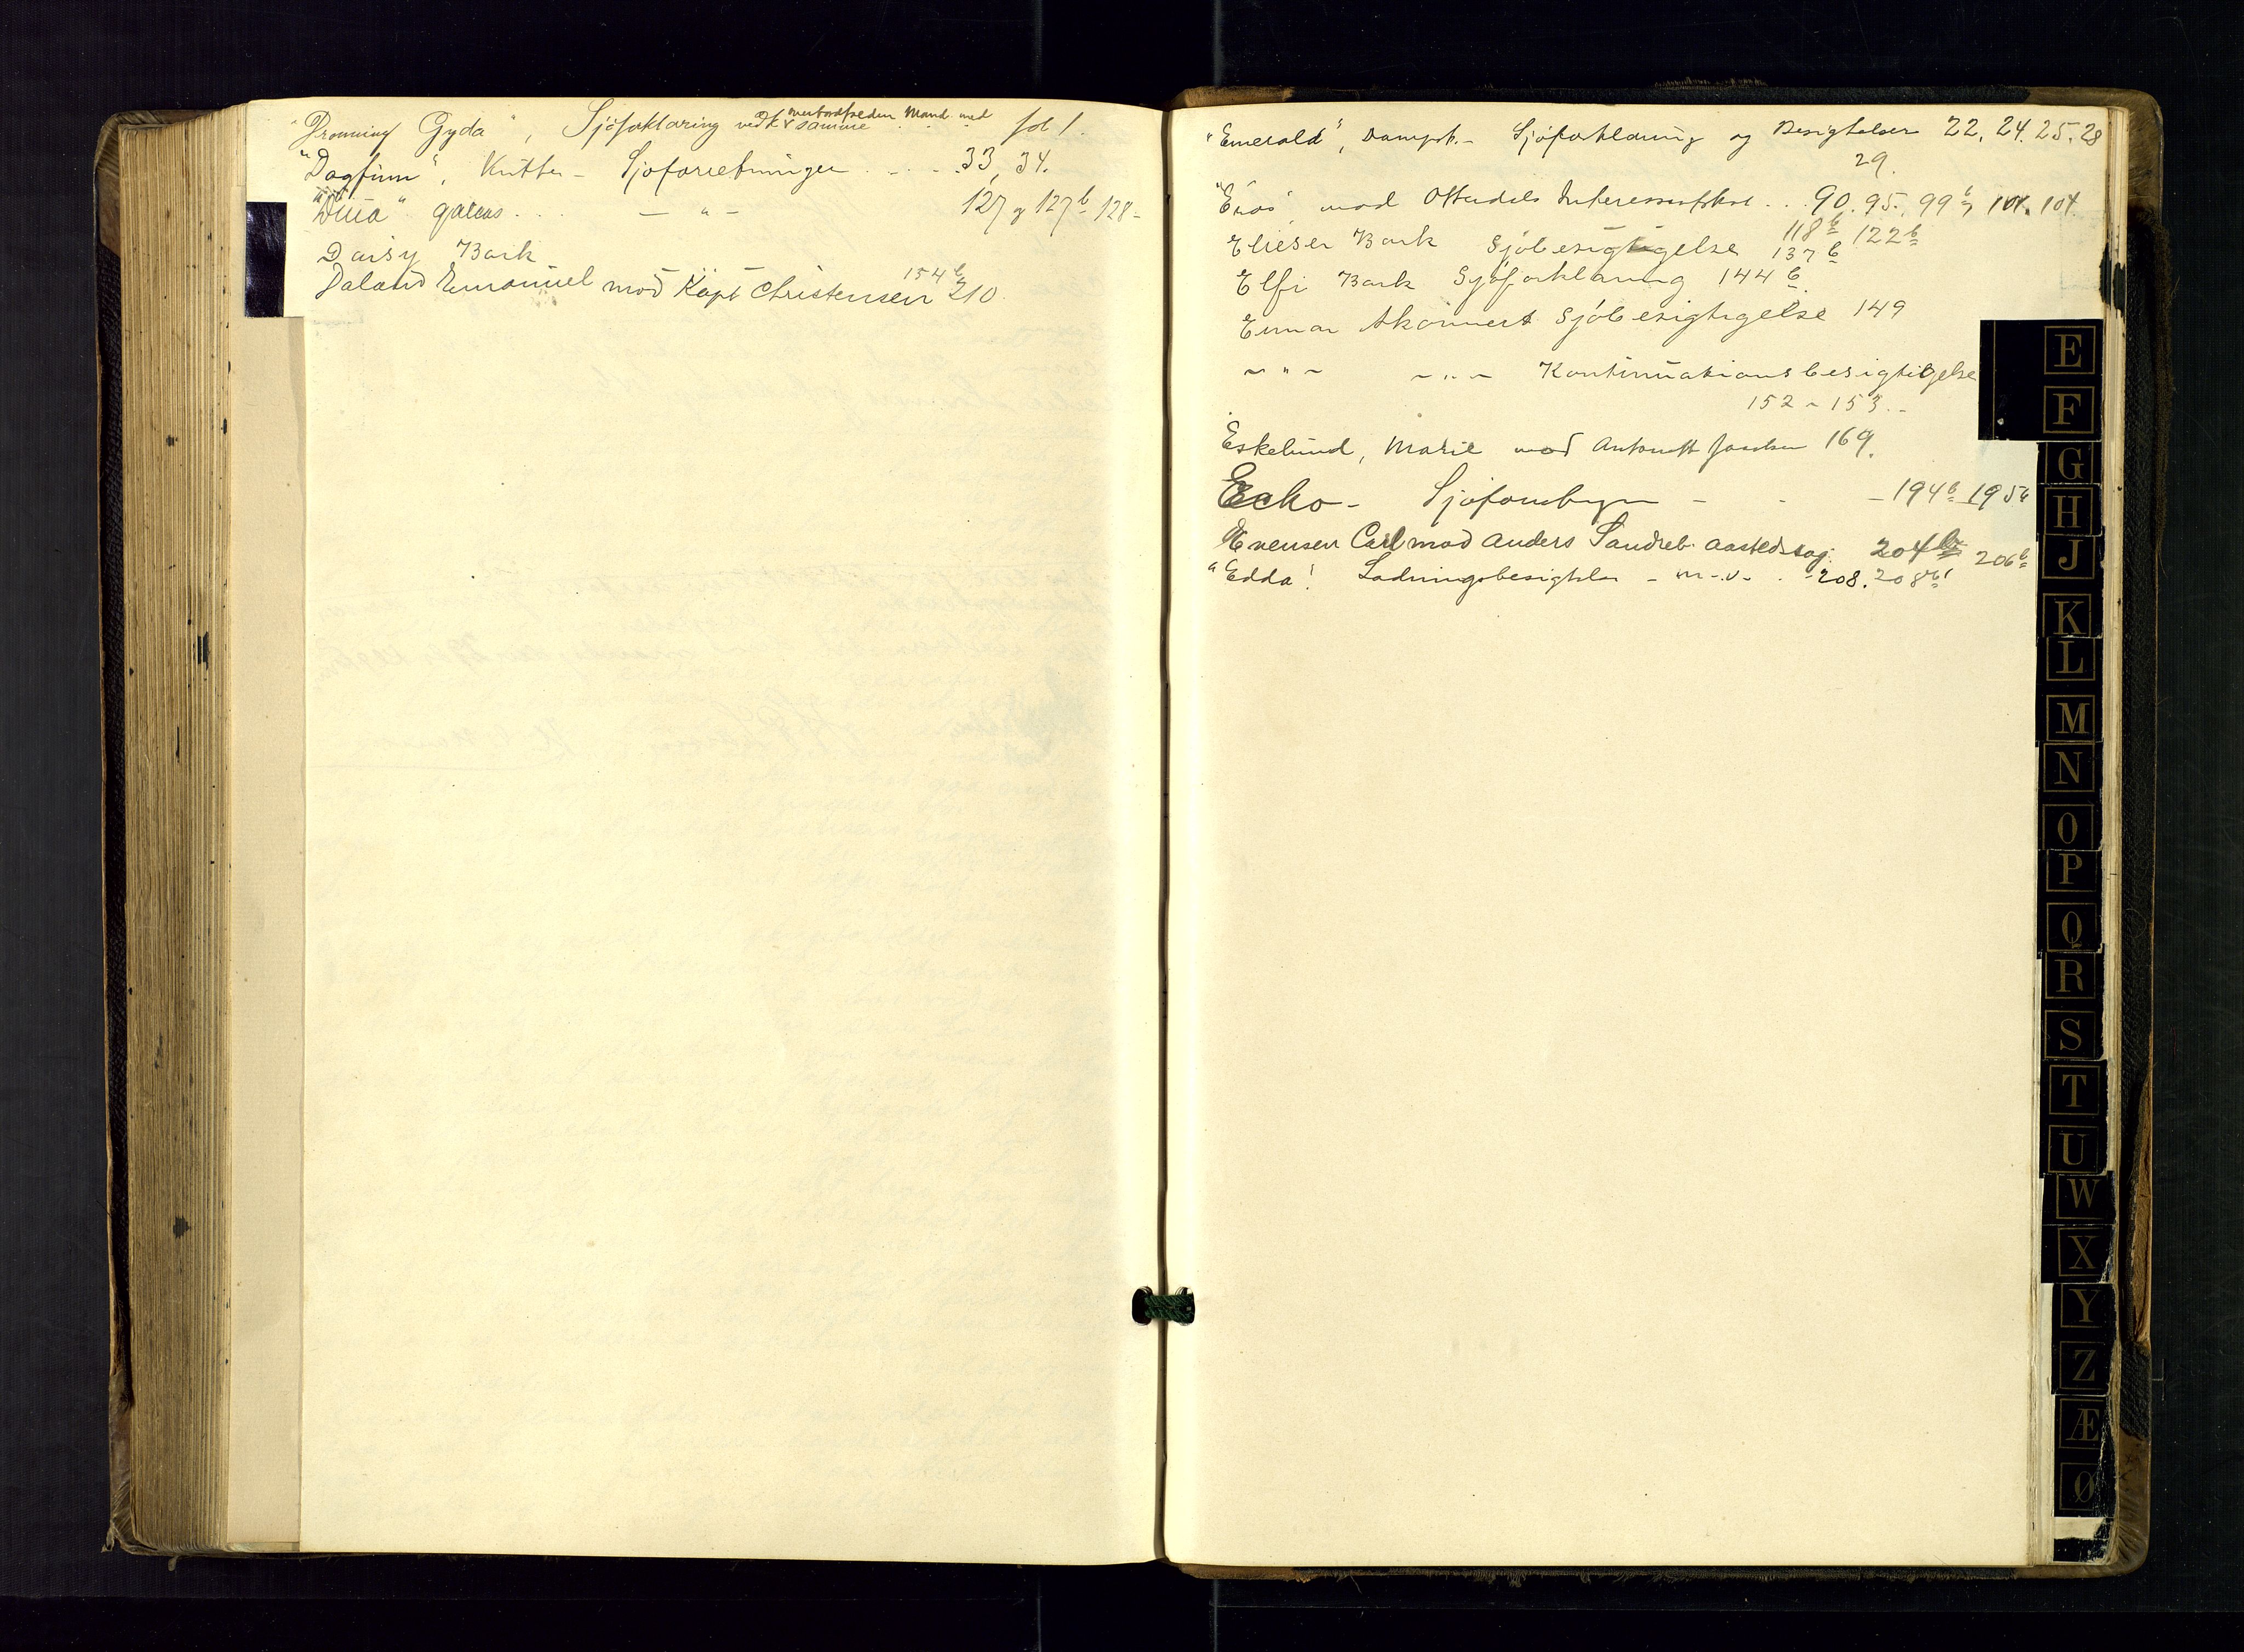 "Dronning Gyda", Sjöforklaring vedk. overbordfreden Mand med samme fol 1.
"Dagfinn", Kutter - Sjöforretninger . . . . 33, 34.
"Dina" galeas . . . — " — 127 og 127b 128 -
Daisy Bark 154b
Daland Emanuel mod Kapt Christensen 210
"Emerald", Dampsk. - Sjöforklaring og Besigtelser 22. 24. 25. 28
29.
"Enos", mod Interessentsk . . 90. 95, 99b, 101. 104.
118b 122b
Elieser Bark Sjöbesigtigelse 137b
Elfi Bark Sjöforklaring 144b.
Einar Skonnert Sjöbesigtigelse 149
— " — — " — Kontinuationsbesigtigelse
152 - 153. -
Eskelund, Marie mod Antonette 169.
Ecko - - - - 194b 195b
Evensen Carl mod Anders Sandreb. aastedssag: 204b 206b
"Edda" Ladningsbesigtelse - m.v. . - 208. 208b
E
F
G
H
J
K
L
M
N
O
P
Q
R
S
T
U
W
X
Y
Z
Æ
Ø